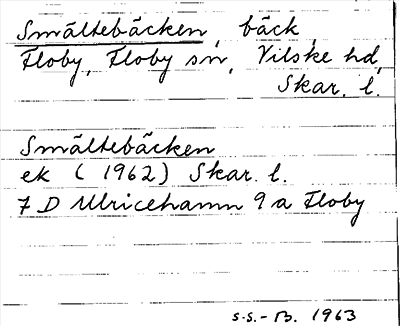 Smältebäcken, bäck,
Floby, Floby sn, Vilske hd,
Skar. l.
Smältebäcken
ek (1962) Skar. l.
7 D Ulricehamn 9 a Floby
S.S.-B. 1963